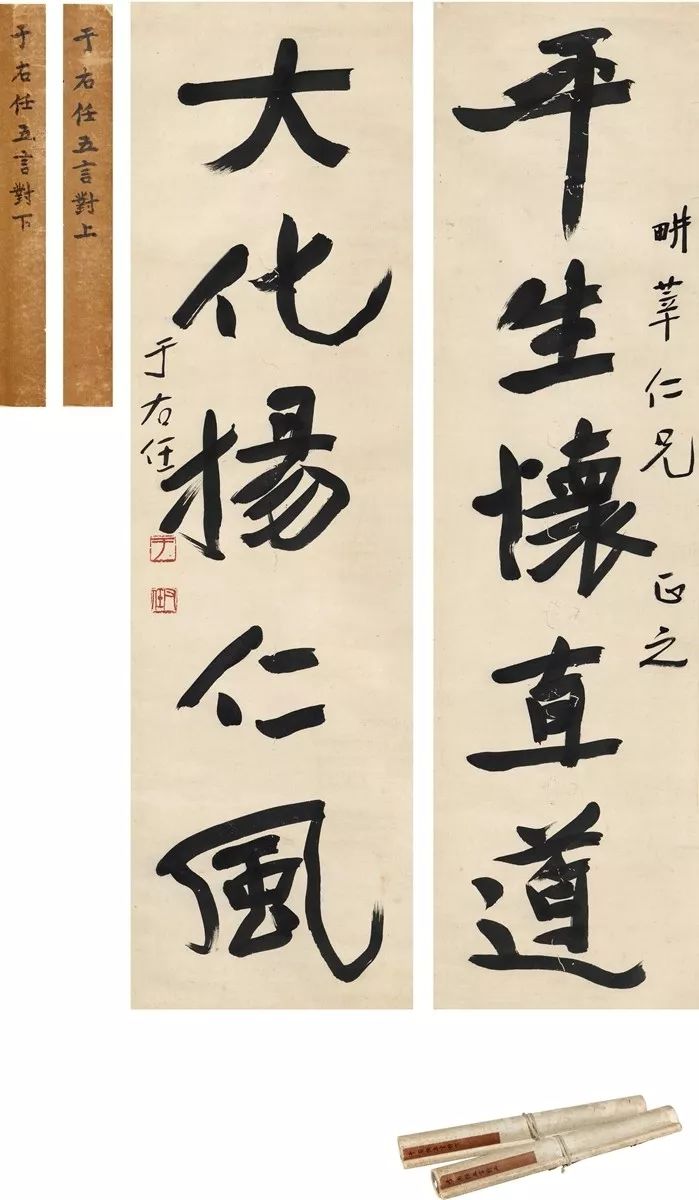 畊莘仁兄 正之
平生懷直道
大化揚仁風
于右任
于
右任
于右任五言對上
于右任五言對下